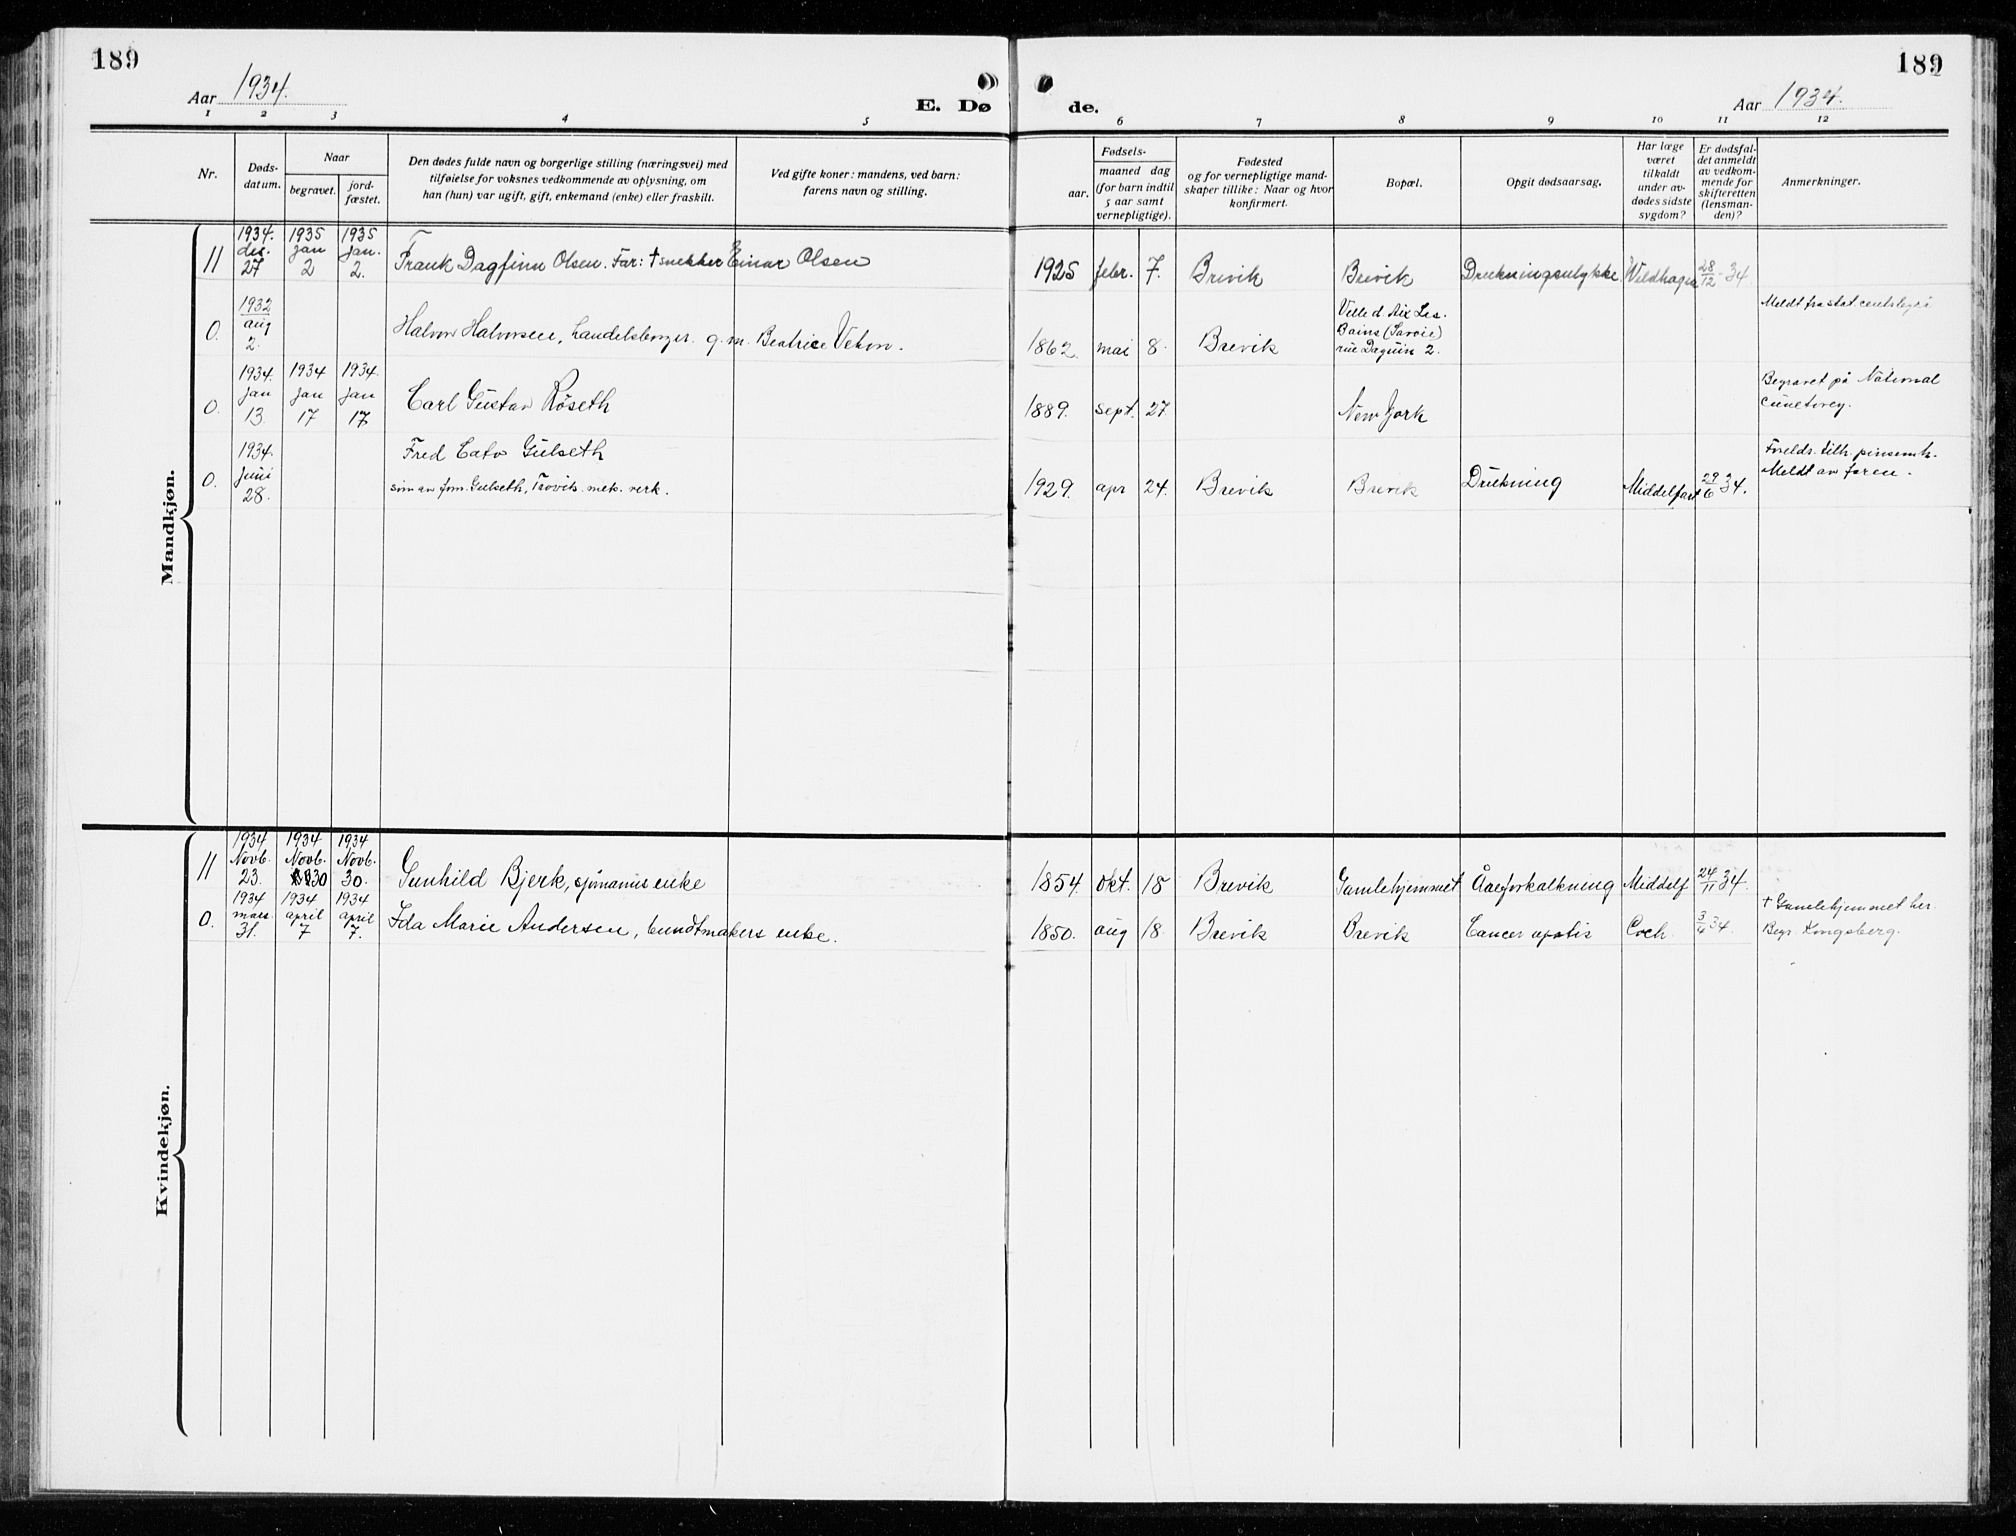 189
189
Aar 1934.
E. Dø
de.
Aar 1934.
1 2 3 4 5 6 7 8 9 10 11 12
Nr.
Døds-
datum.
Naar
begravet.
jord-
fæstet.
Den dødes fulde navn og borgerlige stilling (næringsvei) med
tilføielse for voksnes vedkommende av oplysning, om
han (hun) var ugift, gift, enkemand (enke) eller fraskilt.
Ved gifte koner: mandens, ved barn:
farens navn og stilling.
Fødsels-
aar.
maaned dag
(for barn indtil
5 aar samt
vernepligtige).
Fødested
og for vernepligtige mand-
skaper tillike: Naar og hvor
konfirmert.
Bopæl.
Opgit dødsaarsag.
Har læge
været
tilkaldt
under av-
dødes sidste
sygdom?
Er dødsfal-
det anmeldt
av vedkom-
mende for
skifteretten
(lensman-
den)?
Anmerkninger.
Mandkjøn.
1934. 1935 1935
des. Jan Jan.
11 27 2 2. Frank Dagfinn Olsen. Far: † snekker Einar Olsen 1925 febr. 7. Brevik Brevik Drukningsulykke Wildhagen 28/12-34.
1932
aug
0. 2. Halvor Halvorsen, handelsborger. g. m. Beatrice 1862. mai 8. Brevik
Ville d. Aix Les.
Bains (Savoie)
rue Daquin 2.
Meldt fra
1934. 1934 1934.
Jan Jan Jan
0. 13. 17 17 Carl Gustav Røseth 1889. sept. 27 New York
Begravet på National
1934.
Juni
0. 28.
Fred Cato Gulseth
sön av fom. Gulseth, Trosvik mek. verk. 1929. apr 24. Brevik Brevik Drukning Middelfart 29/6 34.
Forelds. tilh. pinsemh.
Meldt av faren.
Kvindekjøn.
1934 1934 1934
Novb. Novb. Novb.
11 23. 30 30. Gunhild Bjerk, sjömanns enke 1854. okt. 18 Brevik Gamlehjemmet Åreforkalkning Middelf 24/11 34.
1934 1934 1934
mars april april
0. 31. 7 7. Ida Marie Andersen, bundtmakers enke. 1850. aug 18. Brevik Brevik Cancer Coch. 3/4 34.
† Gamlehjemmet her.
Begr. Kongsberg.